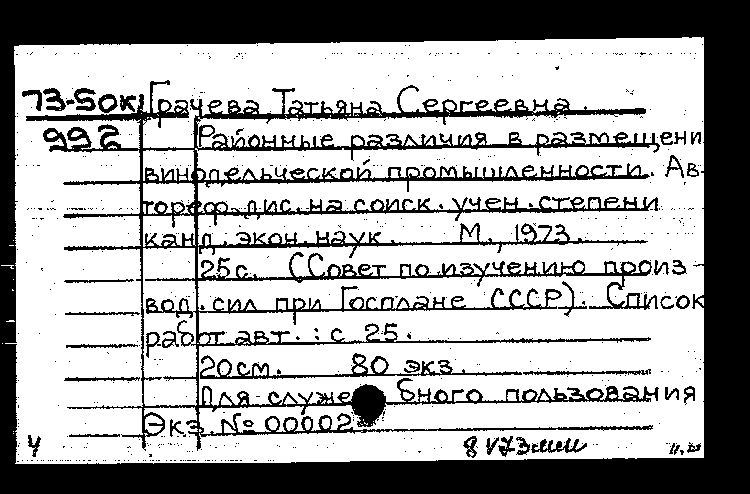 73-5ок Грачева, Татьяна Сергеевна.
992 Районные различия в размещени
винодельческой промышленности. Ав-
тореф. дис. на соиск. учен. степени
канд. экон. наук. М., 1973.
25с. (Совет по изучению произ-
вод. сил при Госплане СССР). Список
работ авт.: с 25.
20см. 80 экз.
Для служебного пользования
Экз № 00002
Ч 8 V73